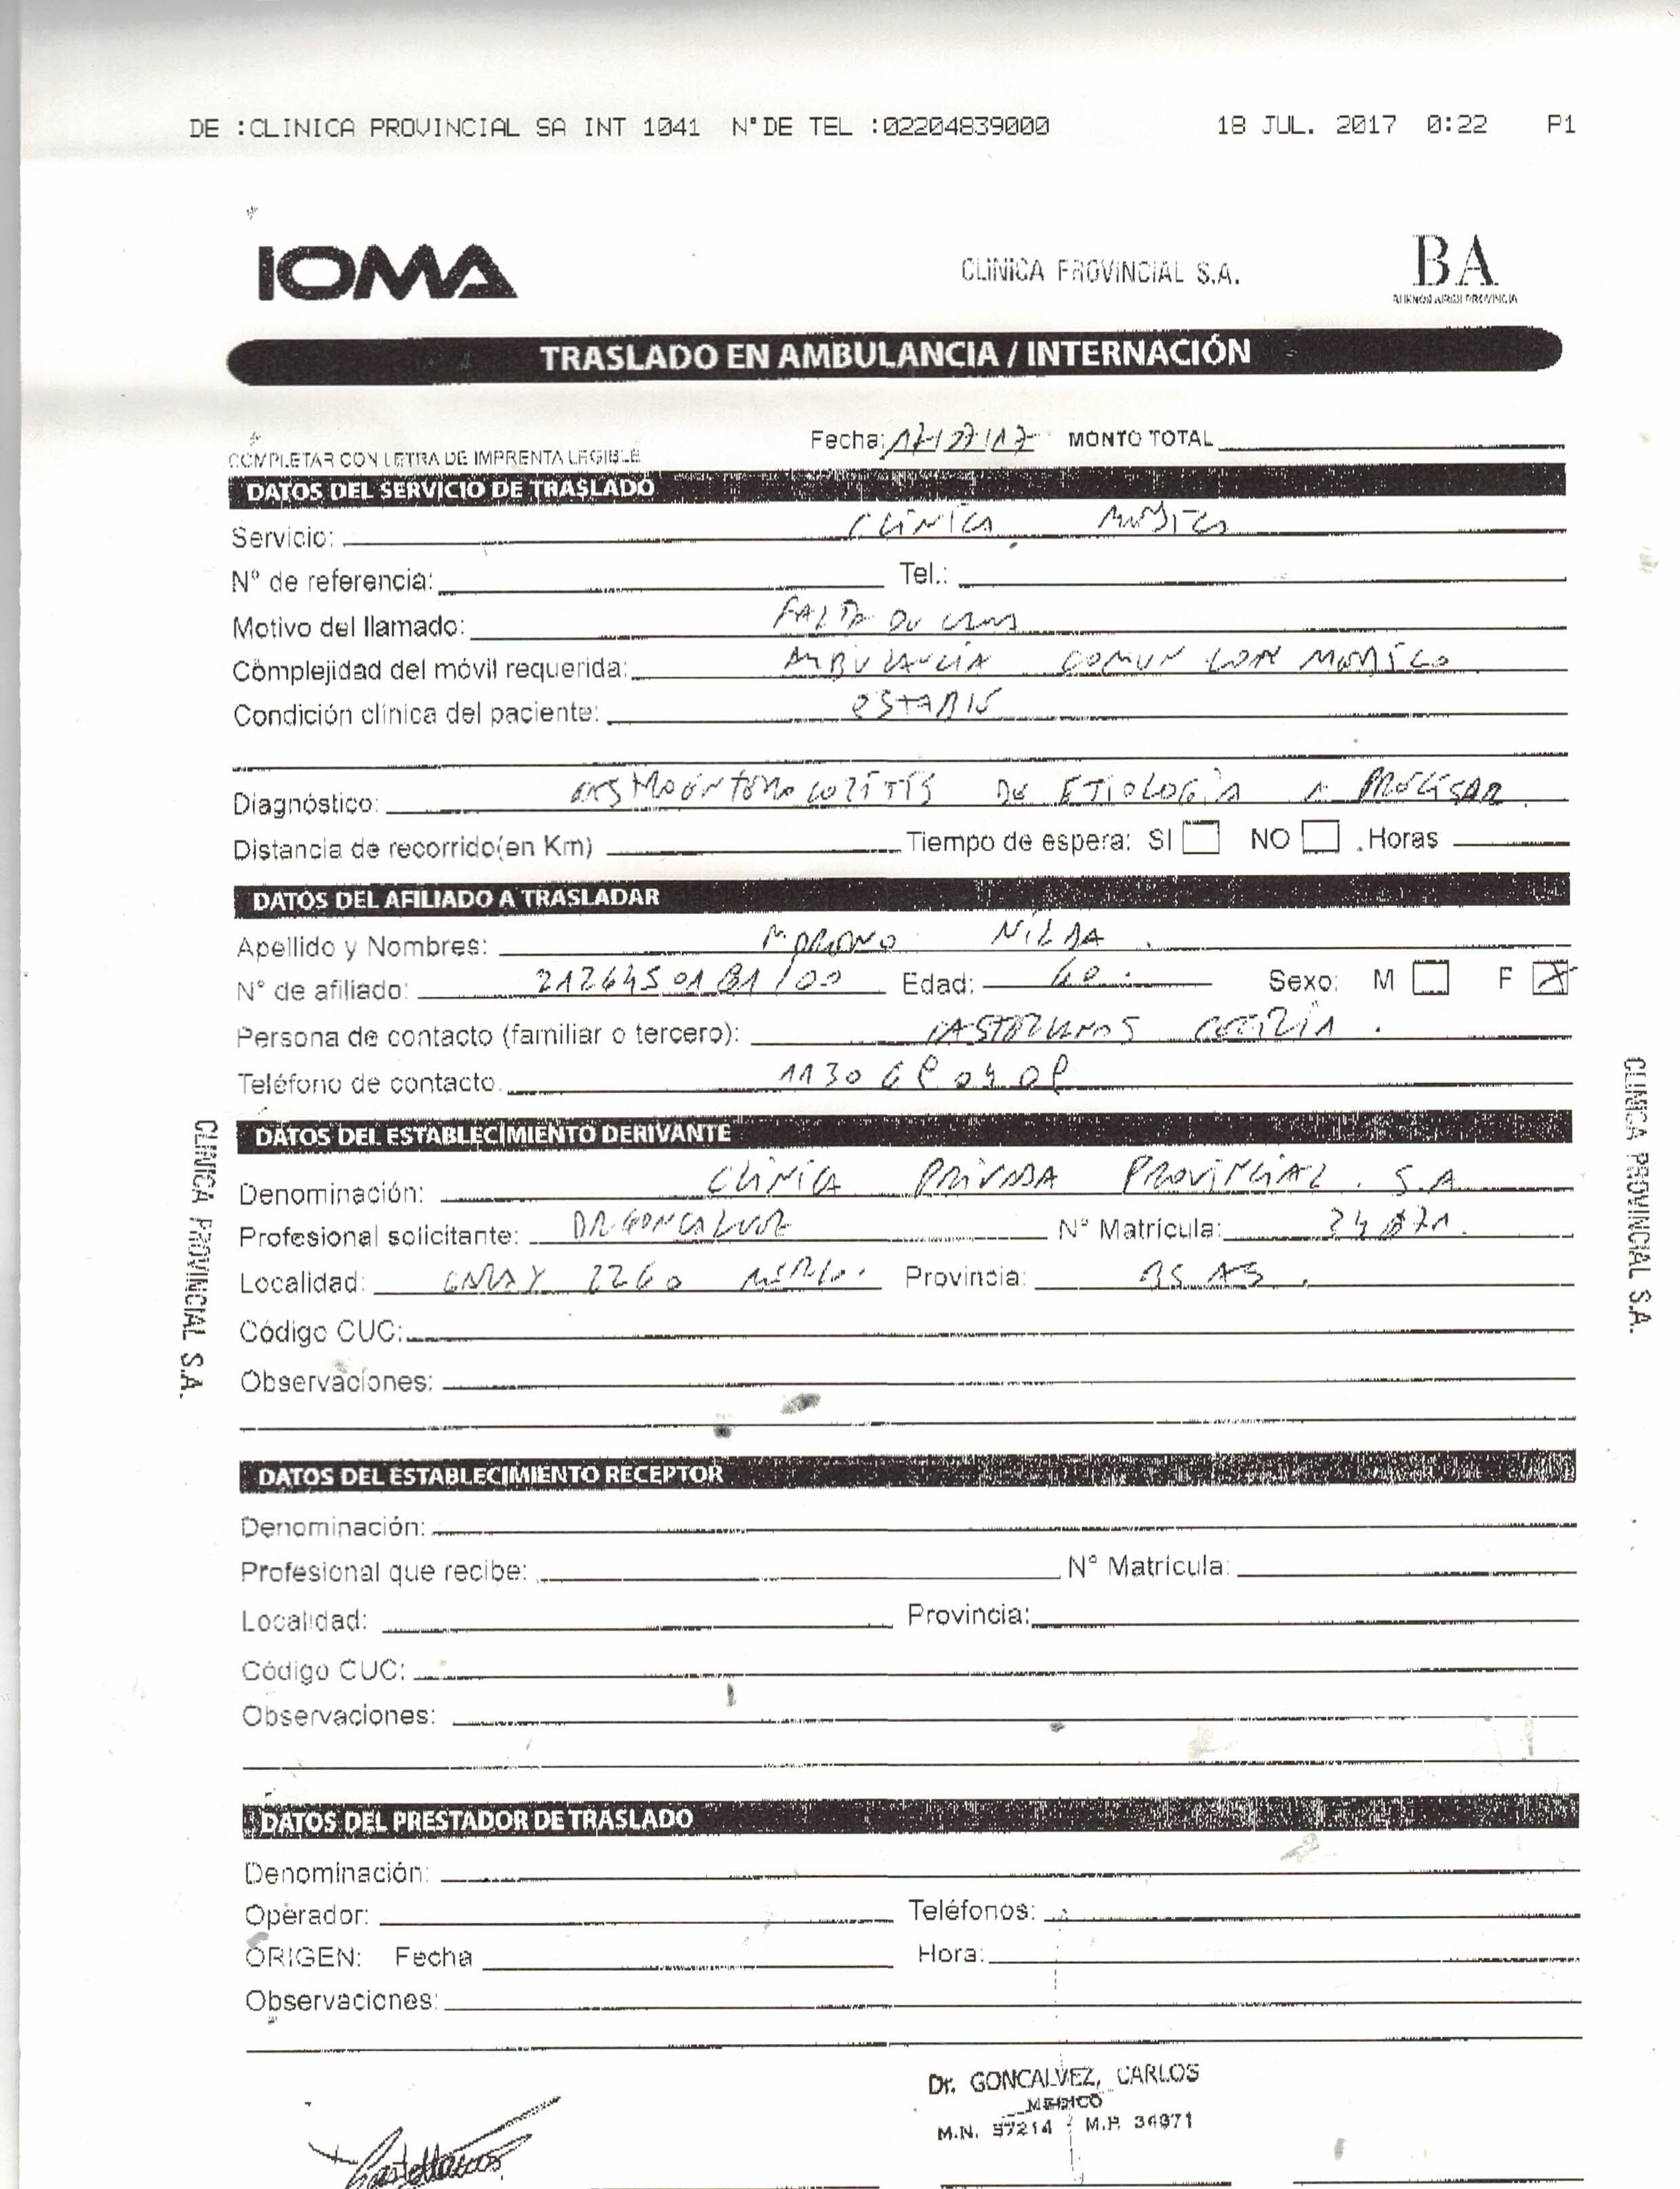 DE :CLINICA PROVINCIAL SA INT 1041 N°DE TEL :02204839000 18 JUL. 2017 0:22 P1
IOMA
CLINICA PROVINCIAL S.A.
BA
BUENOS AIRES PROVINCIA
TRASLADO EN AMBULANCIA / INTERNACIÓN
Fecha: MONTO TOTAL
COMPLETAR CON LETRA DE IMPRENTA LEGIBLE
DATOS DEL SERVICIO DE TRASLADO
Servicio: CLINICA
N° de referencia: Tel.:
Motivo del llamado: FALTA DE
Complejidad del móvil requerida: AMBULANCIA COMUN CON MEDICO
Condición clínica del paciente: ESTABLE
Diagnóstico: DE ETIOLOGIA A PRECISAR
Distancia de recorrido(en Km) Tiempo de espera: SI NO . Horas
DATOS DEL AFILIADO A TRASLADAR
Apellido y Nombres: MORENO NILDA
N° de afiliado: Edad: Sexo: M F X
Persona de contacto (familiar o tercero): CECILIA
Teléfono de contacto.
DATOS DEL ESTABLECIMIENTO DERIVANTE
Denominación: CLINICA PRIVADA PROVINCIAL . S.A
Profesional solicitante: DR. GONCALVEZ N° Matrícula:
Localidad: 2260 MERLO. Provincia: BS AS.
Código CUC:
Observaciones:
CLINICA PROVINCIAL S.A.
CLINICA PROVINCIAL S.A.
DATOS DEL ESTABLECIMIENTO RECEPTOR
Denominación:
Profesional que recibe: N° Matrícula:
Localidad: Provincia:
Código CUC:
Observaciones:
DATOS DEL PRESTADOR DE TRASLADO
Denominación:
Operador: Teléfonos:
ORIGEN: Fecha Hora:
Observaciones:
Dr. GONCALVEZ, CARLOS
MEDICO
M.N. 57214 M.P. 34871